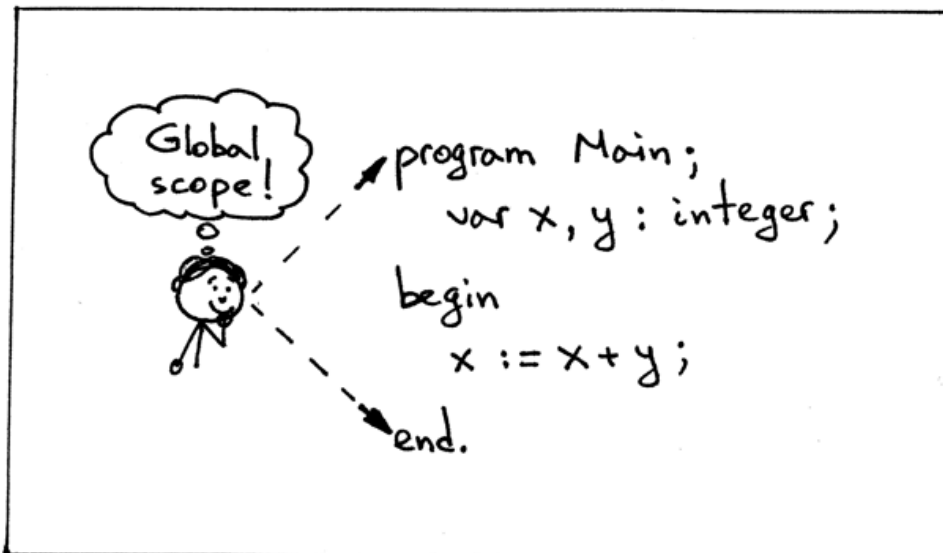 Global
scope!
program Main;
var x, y : integer;
begin
x := x + y ;
end.